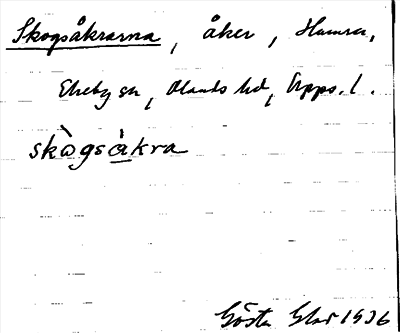 Skogsåkrarna, åker, Hamra,
Ekeby sn, Olands hd, Upps. l.
skògsåkra
Gösta 1936